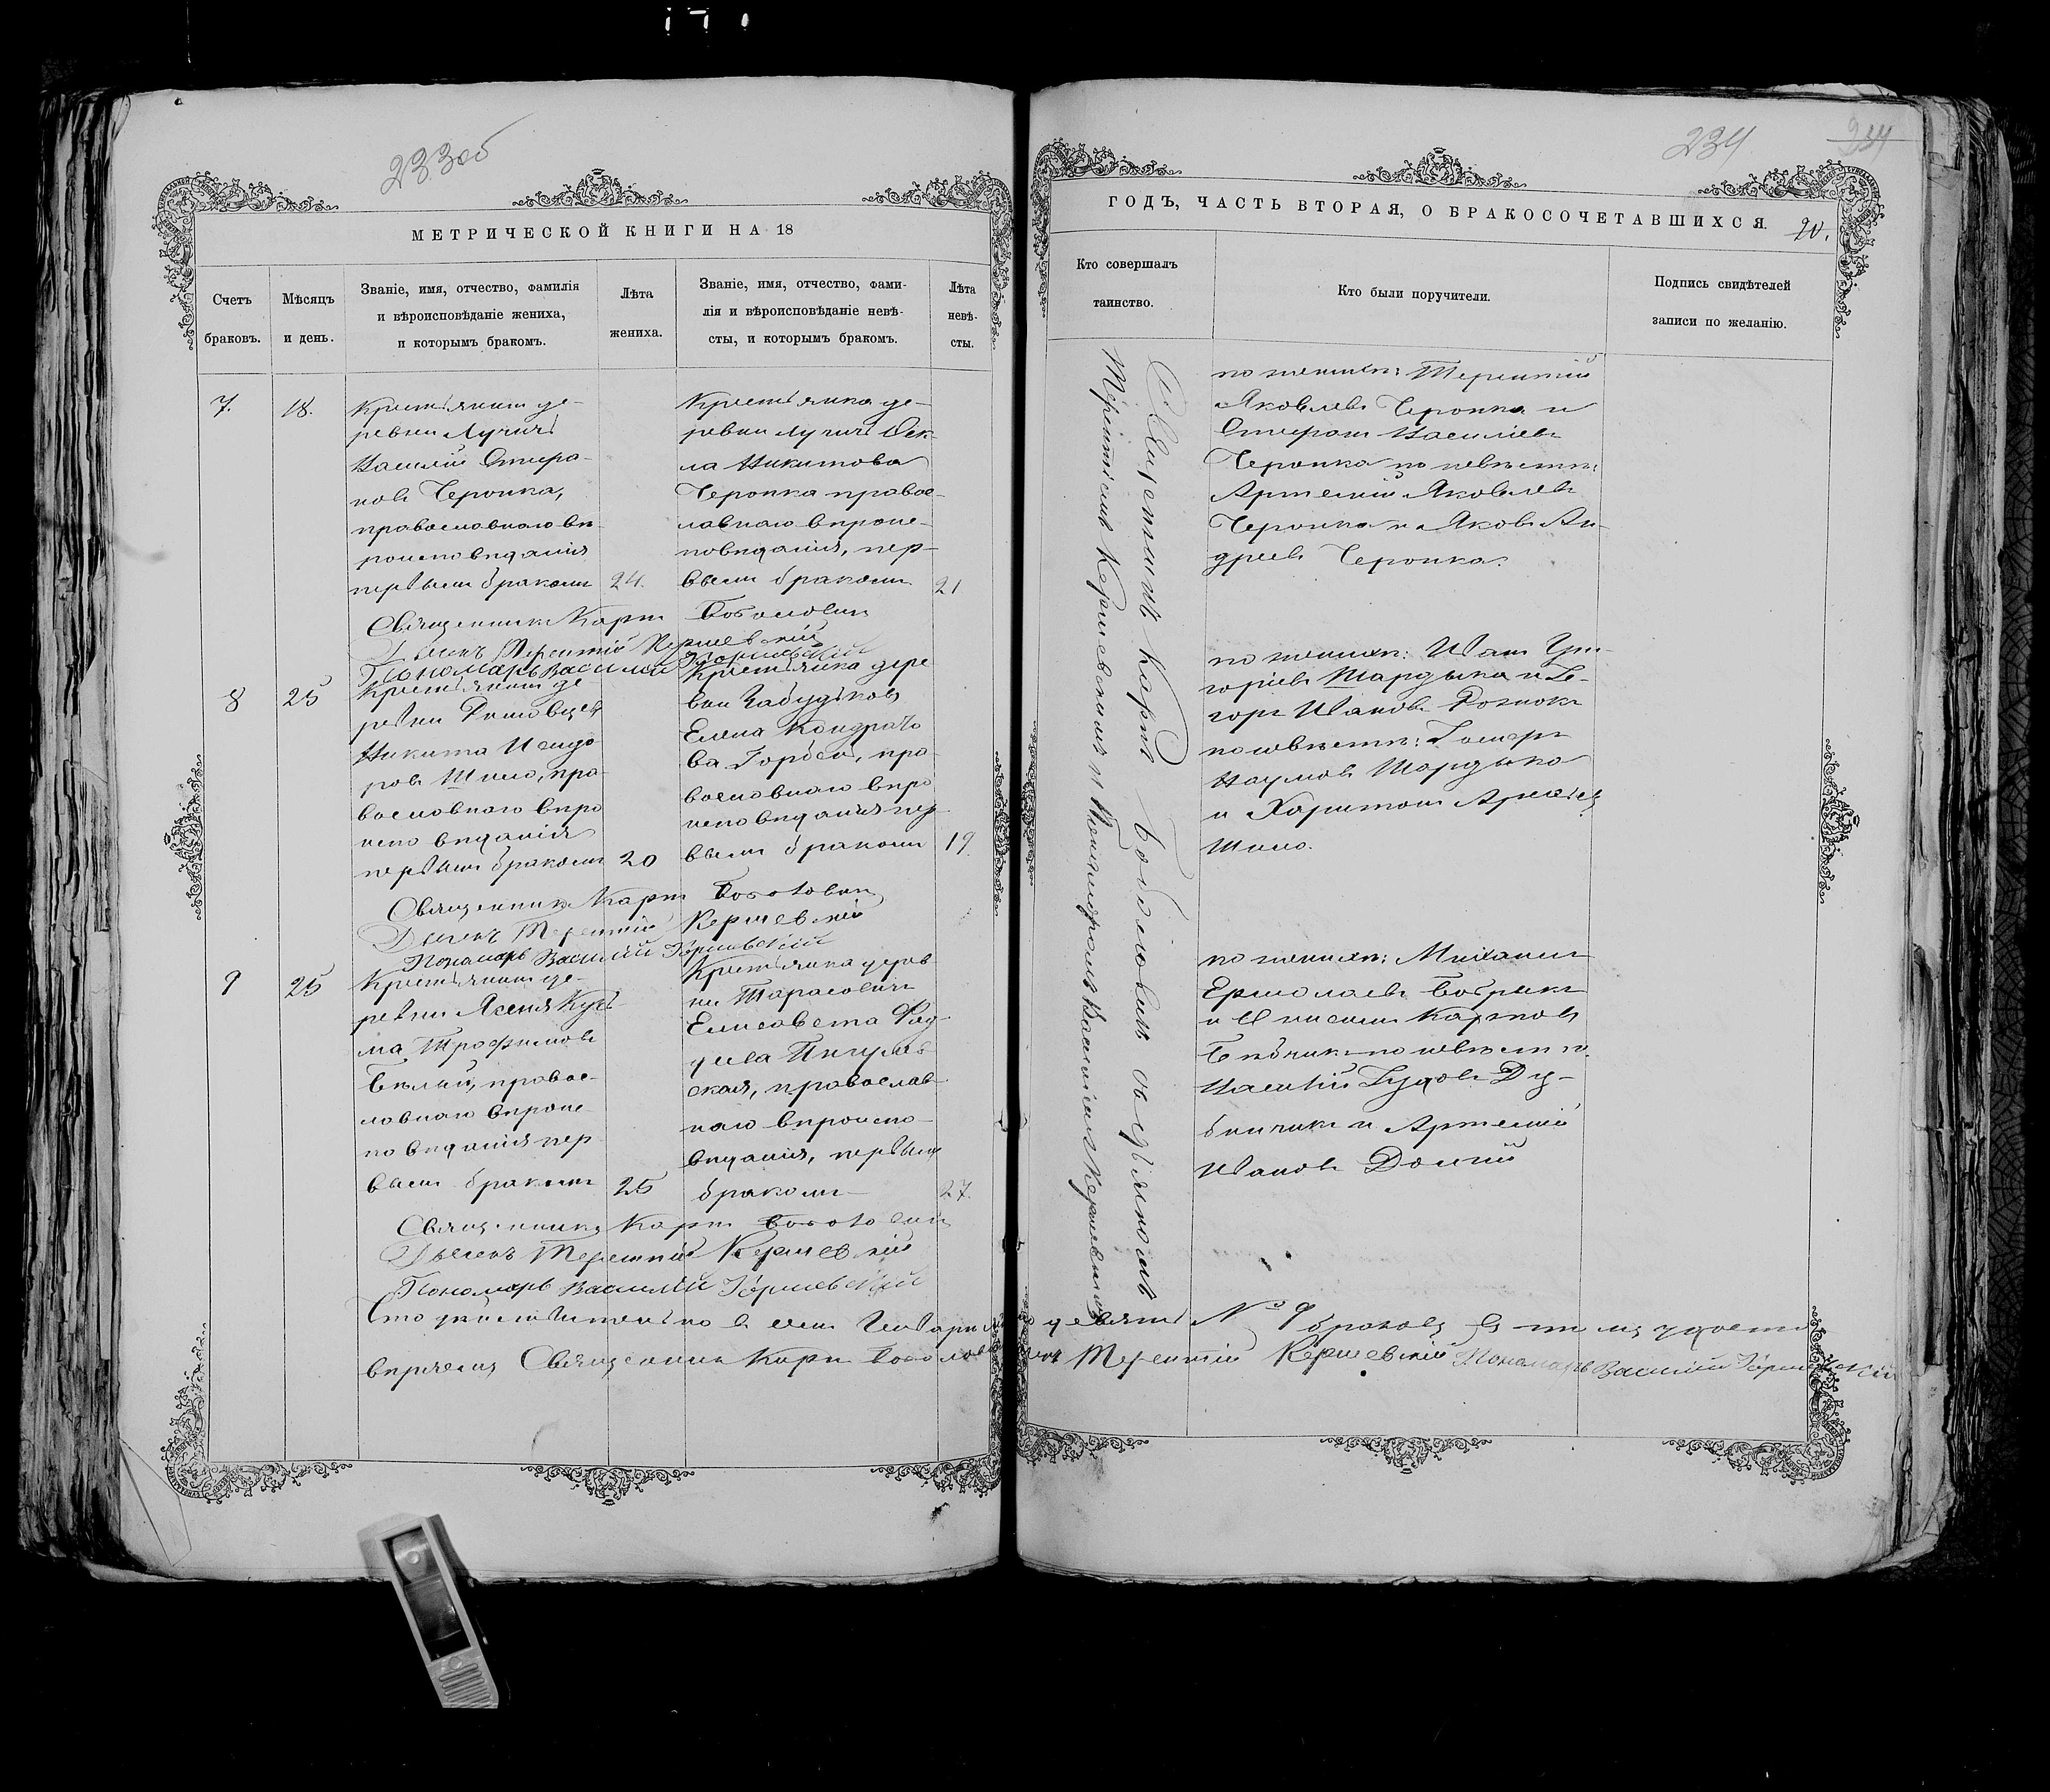 233об
МЕТРИЧЕСКОЙ КНИГИ НА 18
Счетъ
браковъ.
Мѣсяцъ
и день.
Званіе, имя, отчество, фамилія
и вѣроисповѣданіе жениха,
и которымъ бракомъ.
Лѣта
жениха.
Званіе, имя, отчество, фами-
лія и вѣроисповѣданіе невѣ-
сты, и которымъ бракомъ.
Лѣта
невѣ-
сты.
7.
18.
Крестьянинъ де-
ревни Лучичъ
Василій Стефа-
новъ Черопка,
православнаго вѣ-
роисповѣданія
первымъ бракомъ
24.
Крестьянка де-
ревни Лучичъ Фек-
ла Никитова
Черопка правос-
лавнаго вѣроис-
повѣданія, пер-
вымъ бракомъ
21
Священникъ Карпъ
Дьячекъ Терентій Кершевскій
Пономарь Василій Кершевскій
8
25
Крестьянинъ де
ревни
Никита Исидо
ровъ Шило, пра
вославнаго вѣро
исповѣданія
первымъ бракомъ
20
Крестьянка дере
вни
Елена Кондрато
ва, пра
вославнаго вѣро
исповѣданія пер
вымъ бракомъ
19.
Священникъ Карпъ
Дьячекъ Терентій Кершевскій
Пономарь Василій Кершевскій
9
25
Крестьянинъ де-
ревни Кузь
ма Трофимовъ
Бѣлый, правос-
лавнаго вѣроис-
повѣданія пер
вымъ бракомъ
25
Крестьянка дерев
ни Тарасовичъ
Елисавета Фад-
деева
ская, православ-
наго вѣроиспо-
вѣданія, первымъ
бракомъ
27.
Священникъ Карпъ
Дьячекъ Терентій Кершевскій
Пономарь Василій Кершевскій
234
234
ГОДЪ, ЧАСТЬ ВТОРАЯ, О БРАКОСОЧЕТАВШИХСЯ.
20.
Кто совершалъ
таинство.
Кто были поручители.
Подпись свидѣтелей
записи по желанію.
Священникъ Карпъ съ дьячкомъ
Терентіемъ Кершевскимъ и Пономаремъ Василіемъ Кершевскимъ
по женихѣ: Терентій
Яковлевъ Черопка и
Стефанъ Василіевъ
Черопка по невѣстѣ:
Артемій Яковлевъ
Черопка и Яковъ Ан-
дреевъ Черопка.
по женихѣ: Иванъ Гри-
горіевъ Шардыка и Е-
горъ Ивановъ
по невѣстѣ:
Наумовъ Шардыка
и Харитонъ
Шило.
по женихѣ: Михаилъ
Ермолаевъ Бобрикъ
и Карповъ
по невѣстѣ
Василій
и Артемій
Ивановъ Долгій
Что дѣйствительно въ семъ Январѣ девять № 9 браковъ въ томъ удосто
вѣряемъ Священникъ Карпъ Терентій Кершевскій Пономарь Василій Кершевскій